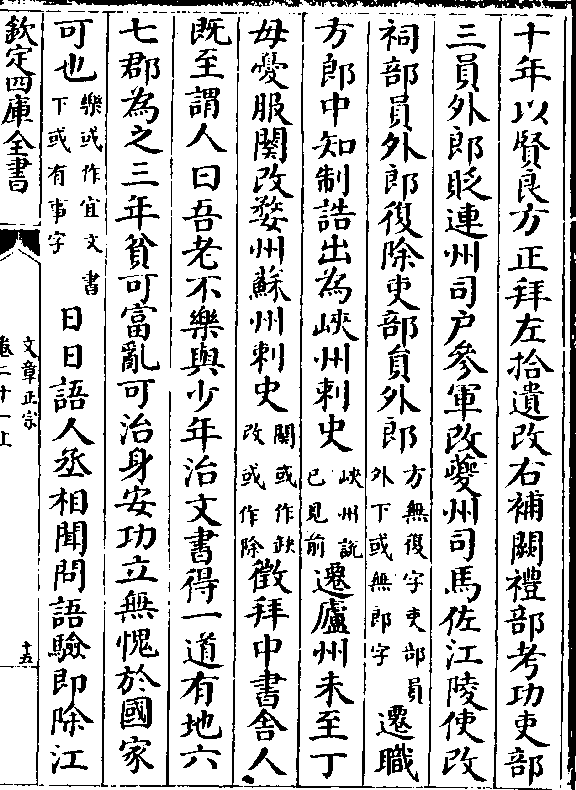 十年以賢良方正拜左拾遺改右補闕禮部考功吏部
三員外郎貶連州司户參軍改夔州司馬佐江陵使改
祠部員外郎復除吏部員外郎方無復字吏部員外下或無郎字遷職
方郎中知制誥出為峽州刺史峽州說已見前遷廬州未至丁
母憂服闋改婺州蘇州刺史闋或作缺改或作除徵拜中書舍人
既至謂人曰吾老不樂與少年治文書得一道有地六
七郡為之三年貧可富亂可治身安功立無愧於國家
可也樂或作宜文書下或有事字日日語人丞相聞問語驗即除江
欽定四庫全書
文章正宗
卷二十一上
十五